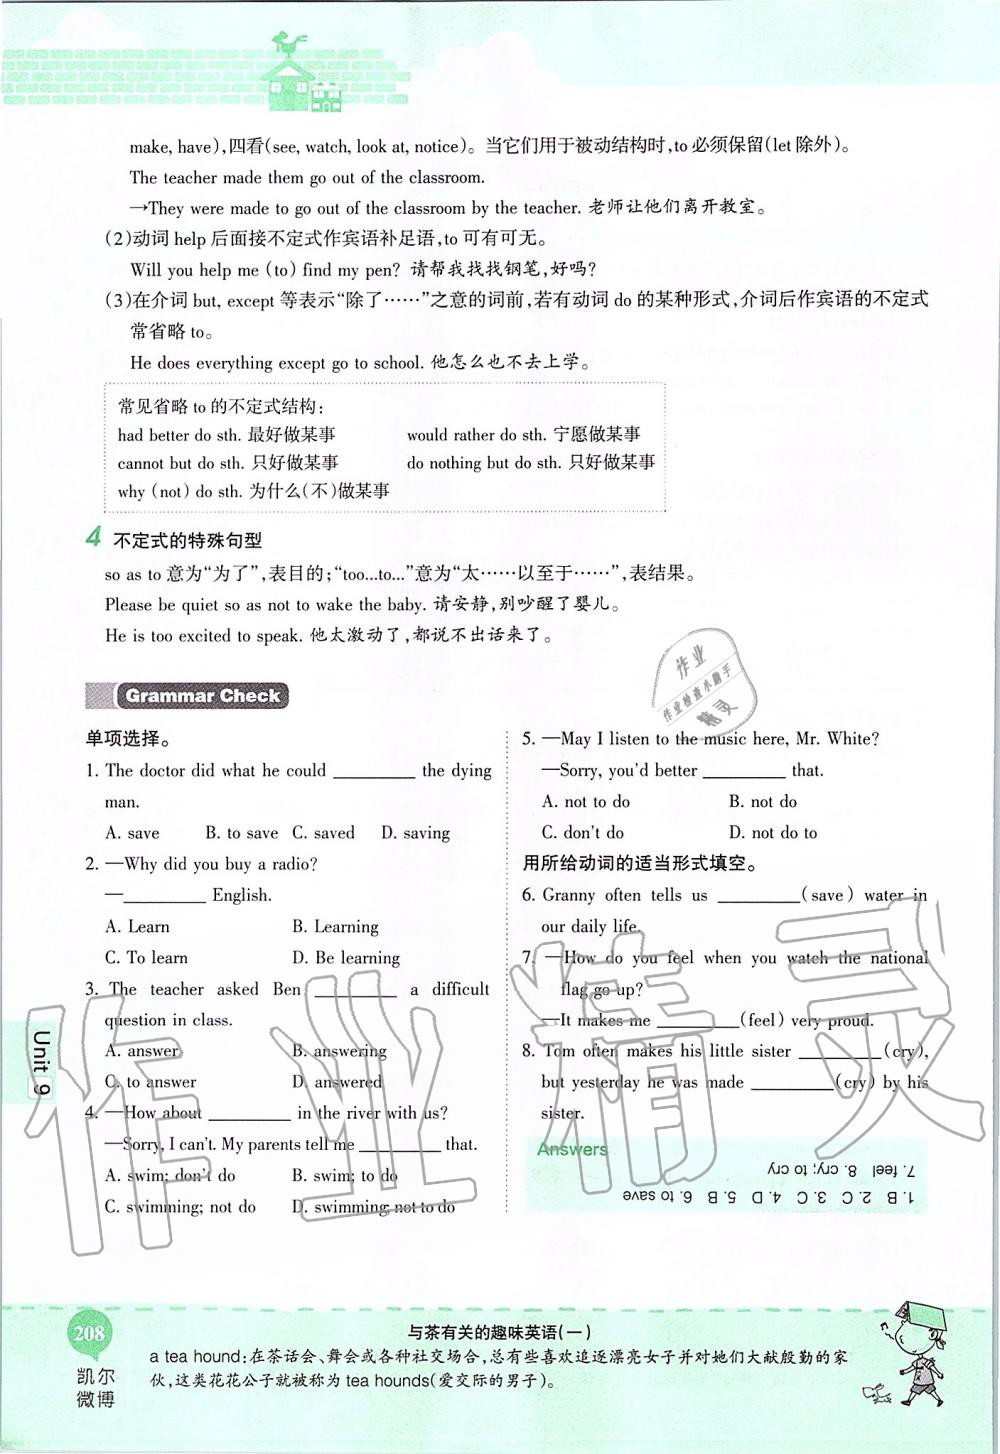 make, have),四看(see, watch, look at, notice)。当它们用于被动结构时,to 必须保留(let 除外)。
The teacher made them go out of the classroom.
→They were made to go out of the classroom by the teacher. 老师让他们离开教室。
(2)动词 help 后面接不定式作宾语补足语,to 可有可无。
Will you help me (to) find my pen? 请帮我找找钢笔,好吗?
(3)在介词 but, except 等表示“除了……”之意的词前,若有动词 do 的某种形式,介词后作宾语的不定式
常省略 to。
He does everything except go to school. 他怎么也不去上学。
常见省略 to 的不定式结构:
had better do sth. 最好做某事 would rather do sth. 宁愿做某事
cannot but do sth. 只好做某事 do nothing but do sth. 只好做某事
why (not) do sth. 为什么(不)做某事
4 不定式的特殊句型
so as to 意为“为了”,表目的;“too...to...”意为“太……以至于……”,表结果。
Please be quiet so as not to wake the baby. 请安静,别吵醒了婴儿。
He is too excited to speak. 他太激动了,都说不出话来了。
Grammar Check
单项选择。
1. The doctor did what he could ________ the dying
man.
A. save B. to save C. saved D. saving
2. —Why did you buy a radio?
—________ English.
A. Learn B. Learning
C. To learn D. Be learning
3. The teacher asked Ben ________ a difficult
question in class.
A. answer B. answering
C. to answer D. answered
4. —How about ________ in the river with us?
—Sorry, I can't. My parents tell me ________ that.
A. swim; don't do B. swim; to do
C. swimming; not do D. swimming; not to do
5. —May I listen to the music here, Mr. White?
—Sorry, you'd better ________ that.
A. not to do B. not do
C. don't do D. not do to
用所给动词的适当形式填空。
6. Granny often tells us ________(save) water in
our daily life.
7. —How do you feel when you watch the national
flag go up?
—It makes me ________(feel) very proud.
8. Tom often makes his little sister ________(cry),
but yesterday he was made ________(cry) by his
sister.
Answers
1. B 2. C 3. C 4. D 5. B 6. to save
7. feel 8. cry; to cry
Unit 9
作业
作业检查小助手
精灵
作业精灵
208
凯尔
微博
与茶有关的趣味英语(一)
a tea hound:在茶话会、舞会或各种社交场合,总有些喜欢追逐漂亮女子并对她们大献殷勤的家
伙,这类花花公子就被称为 tea hounds(爱交际的男子)。